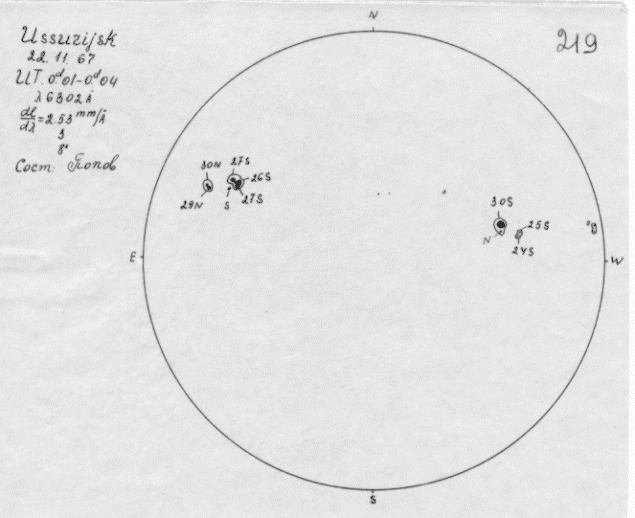 Ussurijsk
22.11.67
UT. 0ᵈ01-0ᵈ04
λ6302Å
dl/dλ=2.53 mm/Å
3
8"
Сост: Попов
N
219
30N
27S
26S
29N
S
27S
30S
N
25S
24S
E
W
S